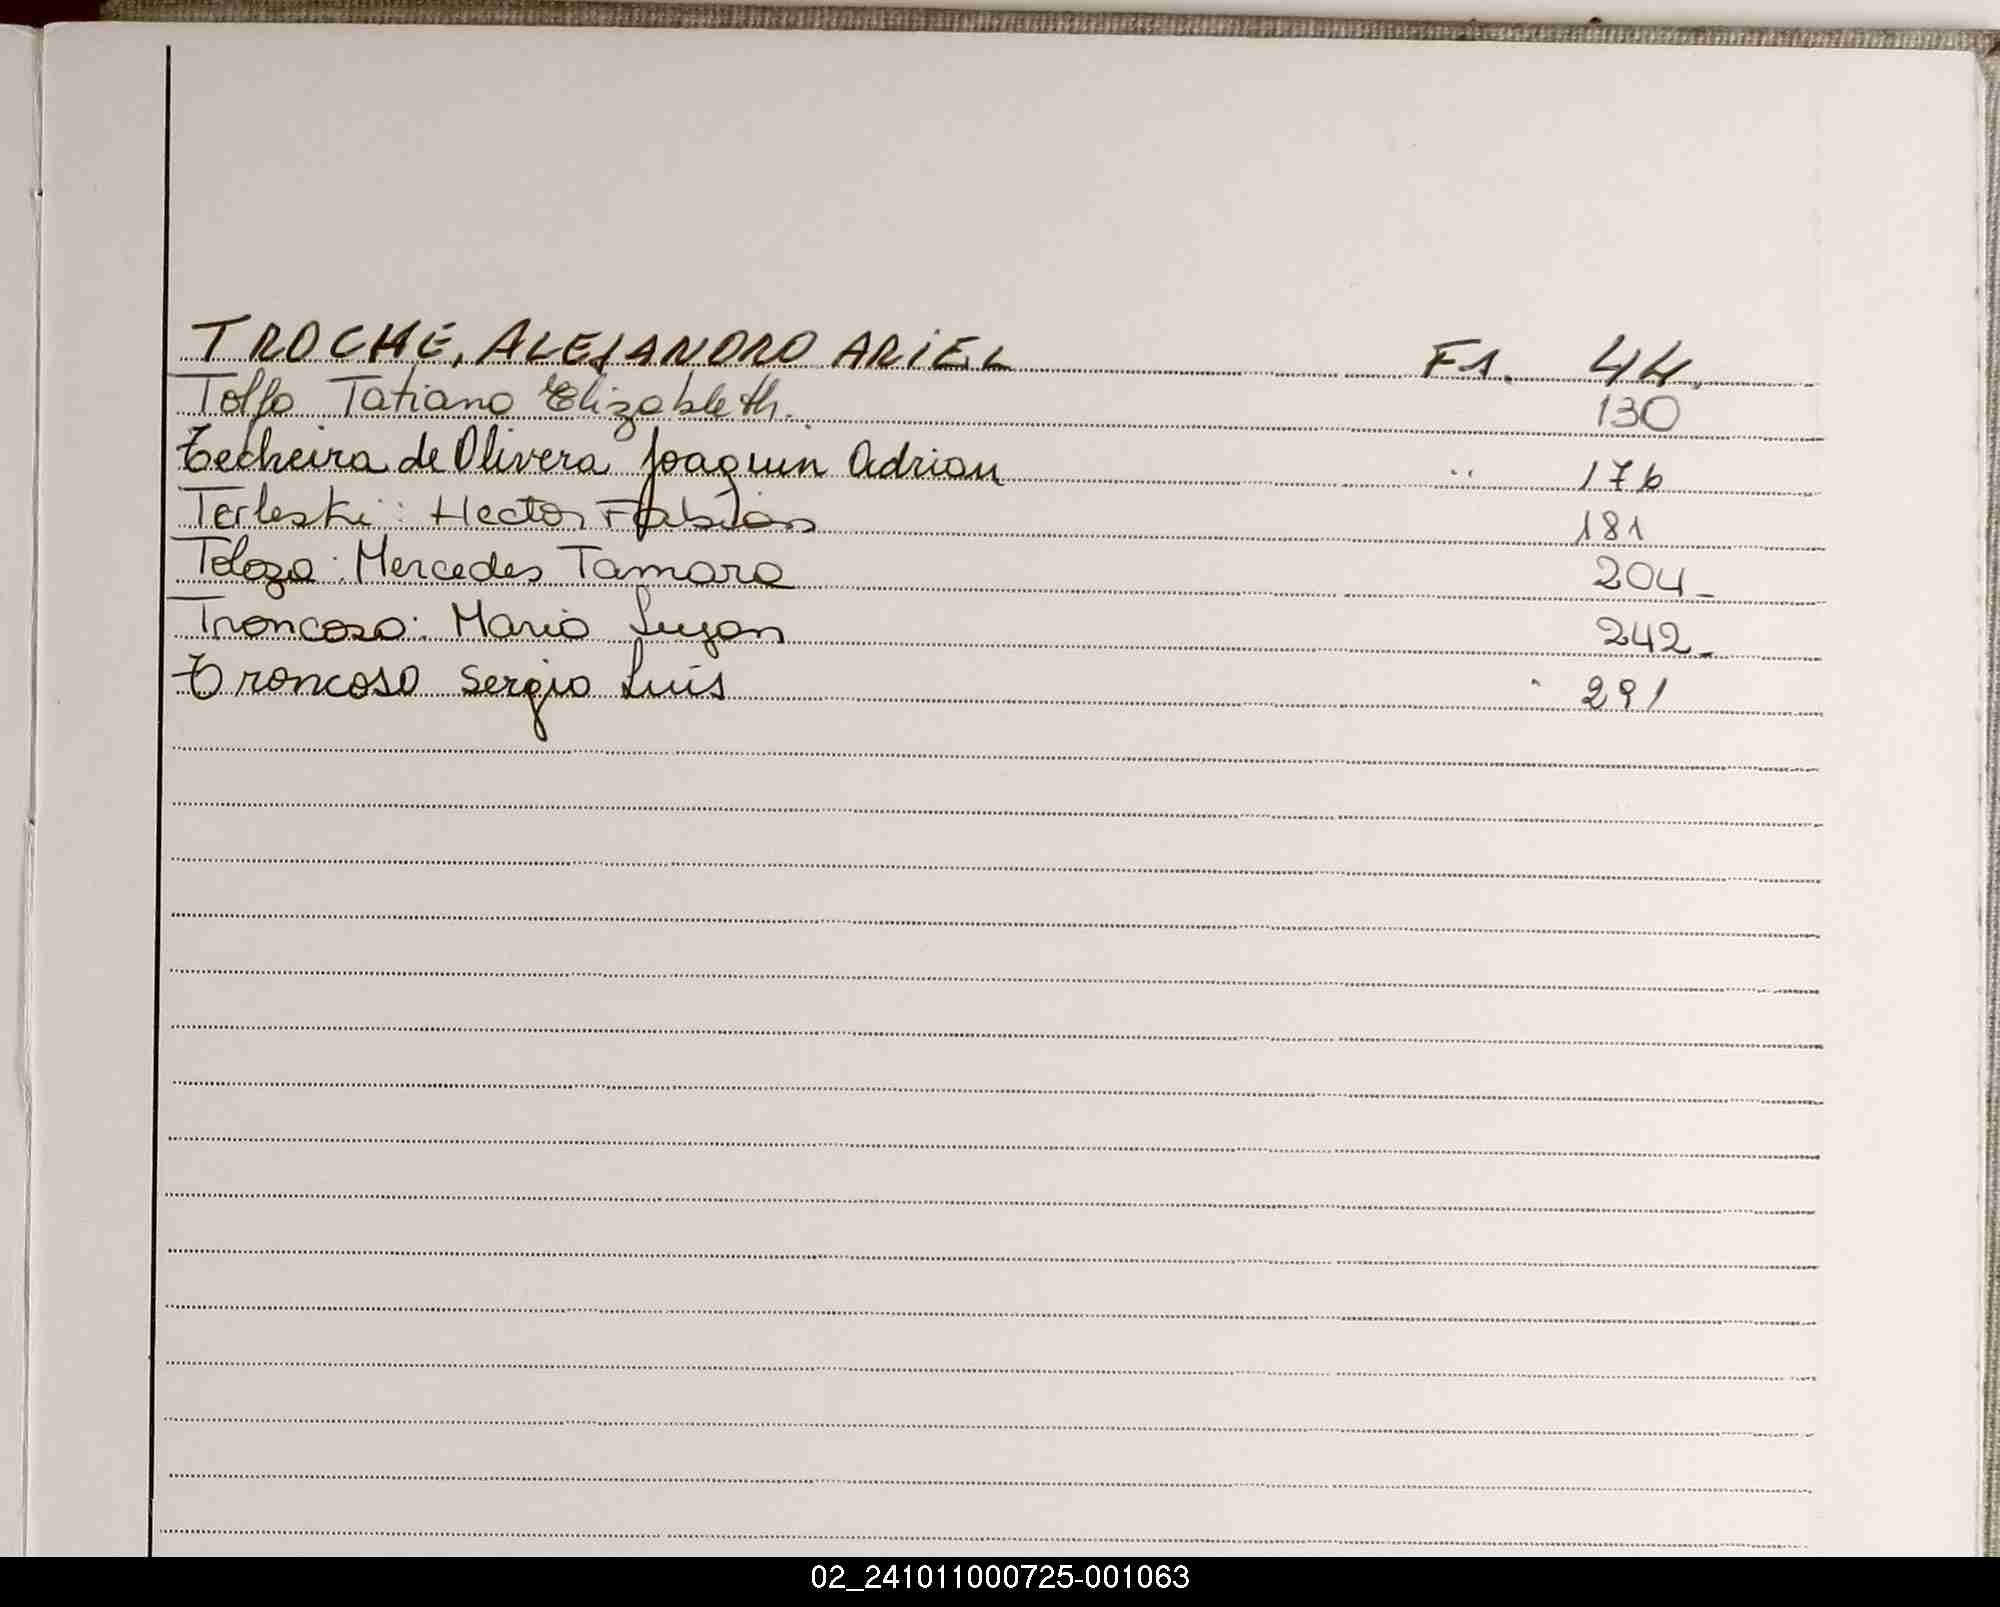 TROCHE, ALEJANDRO ARIEL F1. 44.
Tolfo Tatiana Elizableth. 130
Techeira de Olivera Joaquin Adrian " 176
Terleski: Hector Fabian 181
Toloza: Mercedes Tamara 204_
Troncoso: Mario 242_
Troncoso Sergio Luis " 291
02_241011000725-001063